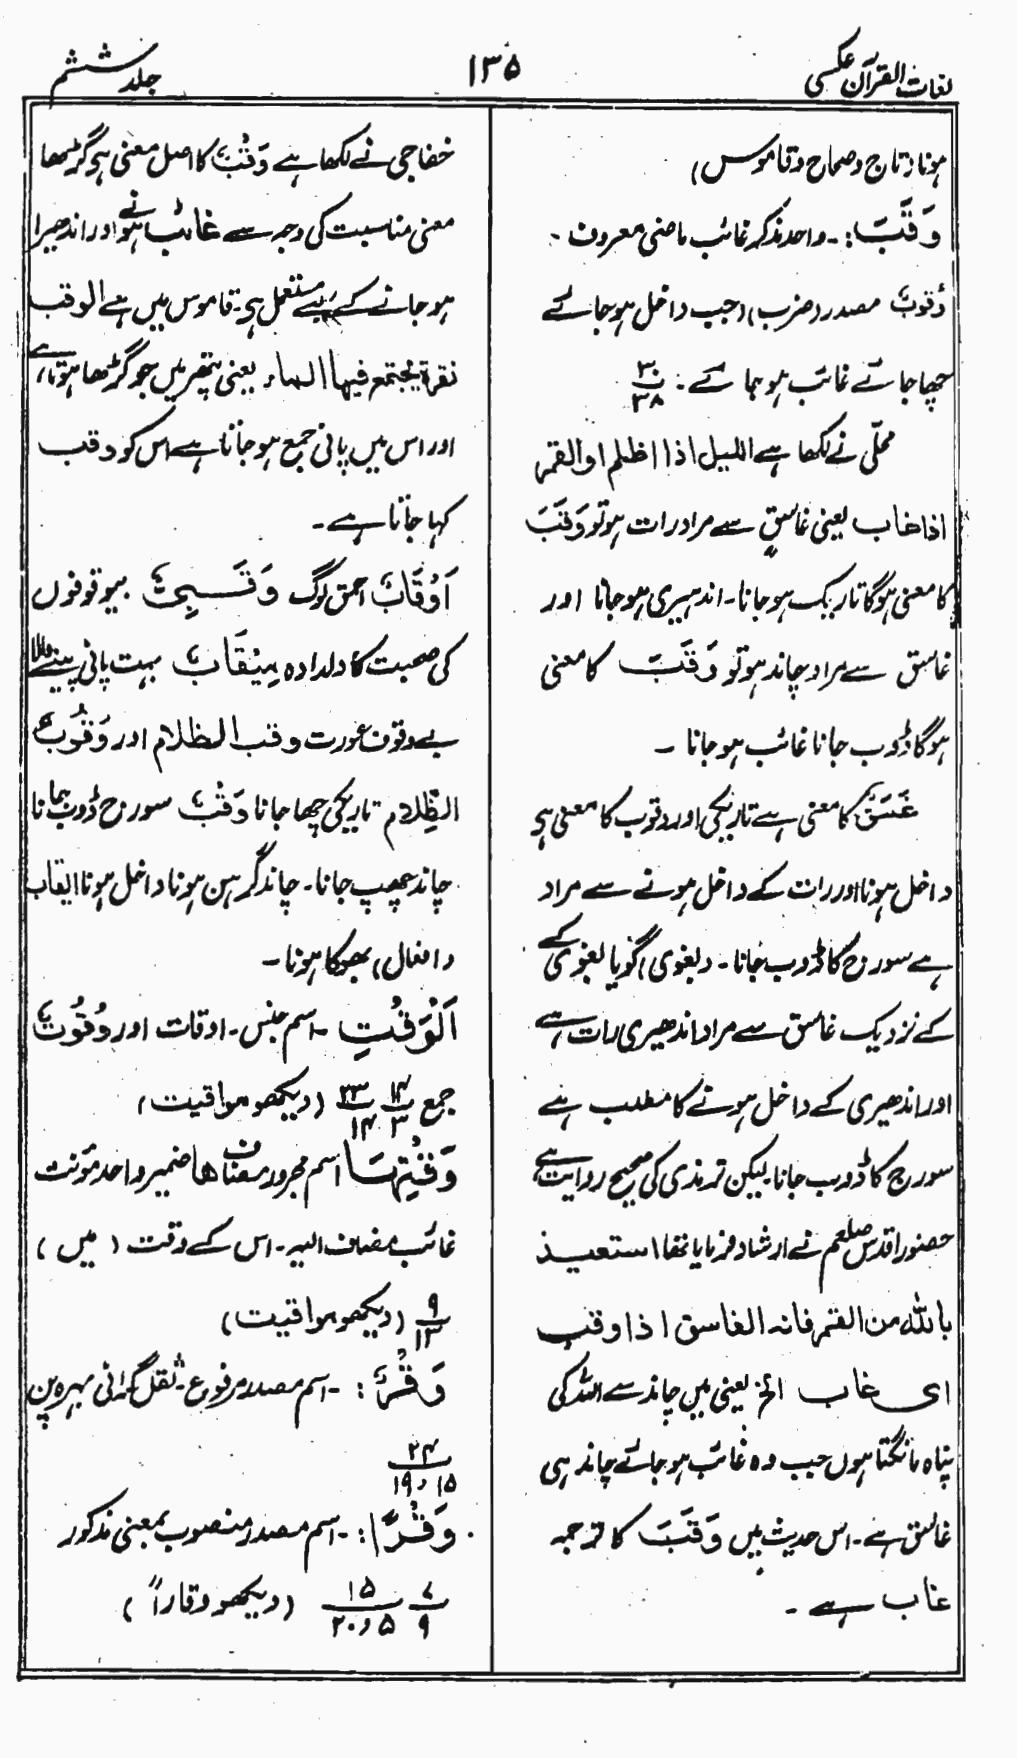 لغات القرآن عکسی
۱۳۵
جلد ششم
ہونا (تاج وصحاح وقاموس)
وَقَبَ:۔ واحد مذکر غائب ماضی معروف۔
وُقُوبٌ مصدر (ضرب) (جب داخل ہو جائے
چھا جائے غائب ہو جائے۔ ۳۰/۳۸
محلّی نے لکھا ہے اللیل اذا اظلم او القمر
اذا غاب یعنی غاسقٍ سے مراد رات ہو تو وَقَبَ
کا معنی ہوگا تاریک ہو جانا۔ اندھیری ہو جانا اور
غاسق سے مراد چاند ہو تو وَقَبَ کا معنی
ہوگا ڈوب جانا غائب ہو جانا۔
غَسَق کا معنی ہے تاریکی اور وقوب کا معنی ہی
داخل ہونا اور رات کے داخل ہونے سے مراد
ہے سورج کا ڈوب جانا۔ (بغوی) گویا بغوی کے
کے نزدیک غاسق سے مراد اندھیری رات ہے
اور اندھیری کے داخل ہونے کا مطلب ہے
سورج کا ڈوب جانا۔ لیکن ترمذی کی صحیح روایت ہے
حضور اقدس صلعم نے ارشاد فرمایا تھا استعیذ
باللہ من القمر فانہ الغاسق اذا وقب
ای غاب الخ یعنی میں چاند سے اللہ کی
پناہ مانگتا ہوں جب وہ غائب ہو جائے چاند ہی
غاسق ہے۔ اس حدیث میں وَقَبَ کا ترجمہ
غاب ہے۔
خفاجی نے لکھا ہے وَقْبٌ کا اصل معنی ہی گڑھا
معنی مناسبت کی وجہ سے غائب ہونے اور اندھیرا
ہو جانے کے لیے مستعمل ہی۔ قاموس میں ہے الوقب
نقرة یجتمع فیھا الماء یعنی پتھر میں جو گڑھا ہوتا ہے
اور اس میں پانی جمع ہو جاتا ہے اس کو وقب
کہا جاتا ہے۔
اَوْقَابٌ احمق لوگ وَقِبِیٌّ بیوقوفوں
کی صحبت کا دلدادہ مِیْقَابٌ بہت پانی پینے والا
بے وقوف عورت وقب الظلام اور وُقُوبٌ
الظِلام تاریکی چھا جانا وَقْبٌ سورج ڈوب جانا
چاند چھپ جانا۔ چاند گرہن ہونا داخل ہونا ایقاب
(افعال) بھوکا ہونا۔
اَلْوَقْتِ ۔ اسم جنس۔ اوقات اور وُقُوتٌ
جمع ۱۴/۳ ۲۳/۱۴ (دیکھو مواقیت)
وَقْتِهَا اسم مجرور مضاف ها ضمیر واحد مؤنث
غائب مضاف الیہ۔ اس کے وقت (میں)
۹/۱۳ (دیکھو مواقیت)
وَقْرٌ:۔ اسم مصدر مرفوع۔ ثقل گرانی بہرہ پن
۲۴/۱۹،۱۵
وَقْرًا:۔ اسم مصدر منصوب بمعنی مذکور
۷/۹ ۱۵/۲۰،۵ (دیکھو وقاراً)